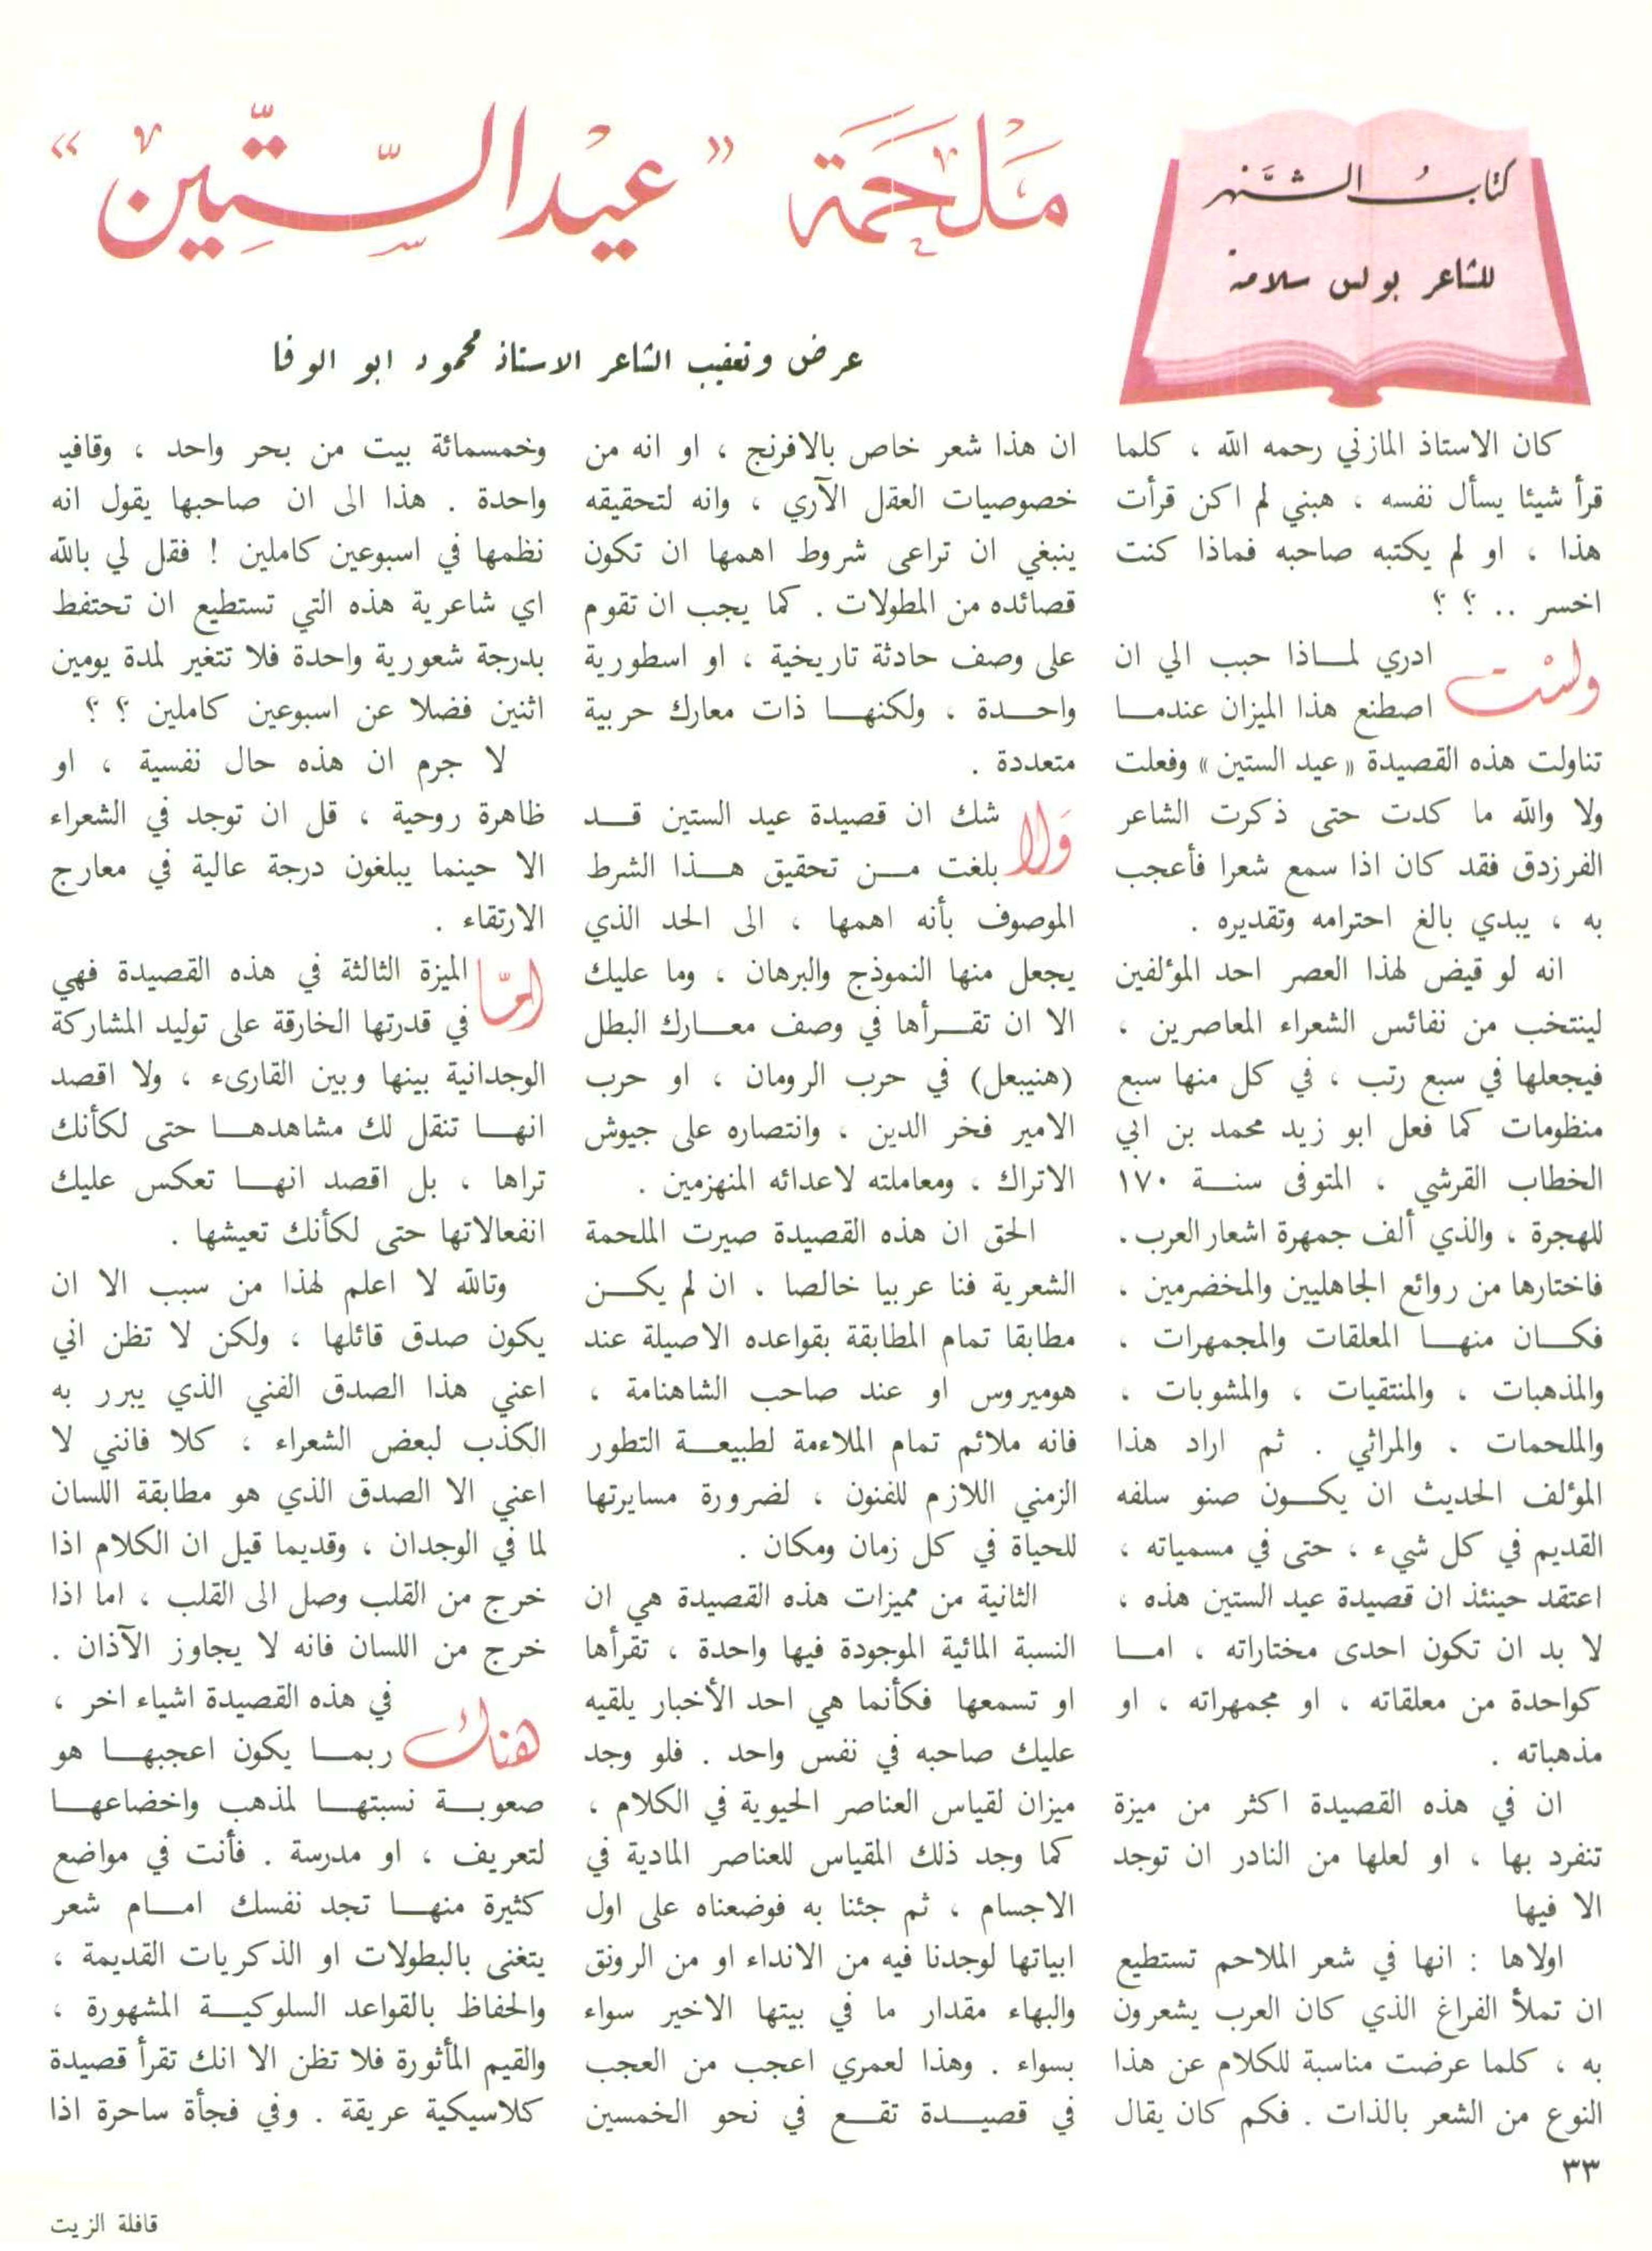 كتاب الشهر
للشاعر بولس سلامة
ملحمة « عيد الستين »
عرض وتعقيب الشاعر الاستاذ محمود ابو الوفا
كان الاستاذ المازني رحمه الله ، كلما
قرأ شيئا يسأل نفسه ، هبني لم اكن قرأت
هذا ، او لم يكتبه صاحبه فماذا كنت
اخسر .. ؟ ؟
ولست ادري لماذا حبب الي ان
اصطنع هذا الميزان عندما
تناولت هذه القصيدة « عيد الستين » وفعلت
ولا والله ما كدت حتى ذكرت الشاعر
الفرزدق فقد كان اذا سمع شعرا فأعجب
به ، يبدي بالغ احترامه وتقديره .
انه لو قيض لهذا العصر احد المؤلفين
لينتخب من نفائس الشعراء المعاصرين ،
فيجعلها في سبع رتب ، في كل منها سبع
منظومات كما فعل ابو زيد محمد بن ابي
الخطاب القرشي ، المتوفى سنة ١٧٠
للهجرة ، والذي ألف جمهرة اشعار العرب .
فاختارها من روائع الجاهليين والمخضرمين ،
فكان منها المعلقات والمجمهرات ،
والمذهبات ، والمنتقيات ، والمشوبات ،
والملحمات . والمراثي . ثم اراد هذا
المؤلف الحديث ان يكون صنو سلفه
القديم في كل شيء ، حتى في مسمياته ،
اعتقد حينئذ ان قصيدة عيد الستين هذه ،
لا بد ان تكون احدى مختاراته ، اما
كواحدة من معلقاته ، او مجمهراته ، او
مذهباته .
ان في هذه القصيدة اكثر من ميزة
تنفرد بها ، او لعلها من النادر ان توجد
الا فيها
اولاها : انها في شعر الملاحم تستطيع
ان تملأ الفراغ الذي كان العرب يشعرون
به ، كلما عرضت مناسبة للكلام عن هذا
النوع من الشعر بالذات . فكم كان يقال
ان هذا شعر خاص بالافرنج ، او انه من
خصوصيات العقل الآري ، وانه لتحقيقه
ينبغي ان تراعى شروط اهمها ان تكون
قصائده من المطولات . كما يجب ان تقوم
على وصف حادثة تاريخية ، او اسطورية
واحدة ، ولكنها ذات معارك حربية
متعددة .
ولا شك ان قصيدة عيد الستين قد
بلغت من تحقيق هذا الشرط
الموصوف بأنه اهمها ، الى الحد الذي
يجعل منها النموذج والبرهان ، وما عليك
الا ان تقرأها في وصف معارك البطل
(هنيبعل) في حرب الرومان ، او حرب
الامير فخر الدين ، وانتصاره على جيوش
الاتراك ، ومعاملته لاعدائه المنهزمين .
الحق ان هذه القصيدة صيرت الملحمة
الشعرية فنا عربيا خالصا . ان لم يكن
مطابقا تمام المطابقة بقواعده الاصيلة عند
هوميروس او عند صاحب الشاهنامة ،
فانه ملائم تمام الملاءمة لطبيعة التطور
الزمني اللازم للفنون ، لضرورة مسايرتها
للحياة في كل زمان ومكان .
الثانية من مميزات هذه القصيدة هي ان
النسبة المائية الموجودة فيها واحدة ، تقرأها
او تسمعها فكأنما هي احد الأخبار يلقيه
عليك صاحبه في نفس واحد . فلو وجد
ميزان لقياس العناصر الحيوية في الكلام ،
كما وجد ذلك المقياس للعناصر المادية في
الاجسام ، ثم جئنا به فوضعناه على اول
ابياتها لوجدنا فيه من الانداء او من الرونق
والبهاء مقدار ما في بيتها الاخير سواء
بسواء . وهذا لعمري اعجب من العجب
في قصيدة تقع في نحو الخمسين
وخمسمائة بيت من بحر واحد ، وقافية
واحدة . هذا الى ان صاحبها يقول انه
نظمها في اسبوعين كاملين ! فقل لي بالله
اي شاعرية هذه التي تستطيع ان تحتفظ
بدرجة شعورية واحدة فلا تتغير لمدة يومين
اثنين فضلا عن اسبوعين كاملين ؟ ؟
لا جرم ان هذه حال نفسية ، او
ظاهرة روحية ، قل ان توجد في الشعراء
الا حينما يبلغون درجة عالية في معارج
الارتقاء .
اما الميزة الثالثة في هذه القصيدة فهي
في قدرتها الخارقة على توليد المشاركة
الوجدانية بينها وبين القارىء ، ولا اقصد
انها تنقل لك مشاهدها حتى لكأنك
تراها ، بل اقصد انها تعكس عليك
انفعالاتها حتى لكأنك تعيشها .
وتالله لا اعلم لهذا من سبب الا ان
يكون صدق قائلها ، ولكن لا تظن اني
اعني هذا الصدق الفني الذي يبرر به
الكذب لبعض الشعراء ، كلا فانني لا
اعني الا الصدق الذي هو مطابقة اللسان
لما في الوجدان ، وقديما قيل ان الكلام اذا
خرج من القلب وصل الى القلب ، اما اذا
خرج من اللسان فانه لا يجاوز الآذان .
هناك في هذه القصيدة اشياء اخر ،
ربما يكون اعجبها هو
صعوبة نسبتها لمذهب واخضاعها
لتعريف ، او مدرسة . فأنت في مواضع
كثيرة منها تجد نفسك امام شعر
يتغنى بالبطولات او الذكريات القديمة ،
والحفاظ بالقواعد السلوكية المشهورة ،
والقيم المأثورة فلا تظن الا انك تقرأ قصيدة
كلاسيكية عريقة . وفي فجأة ساحرة اذا
٣٣
قافلة الزيت